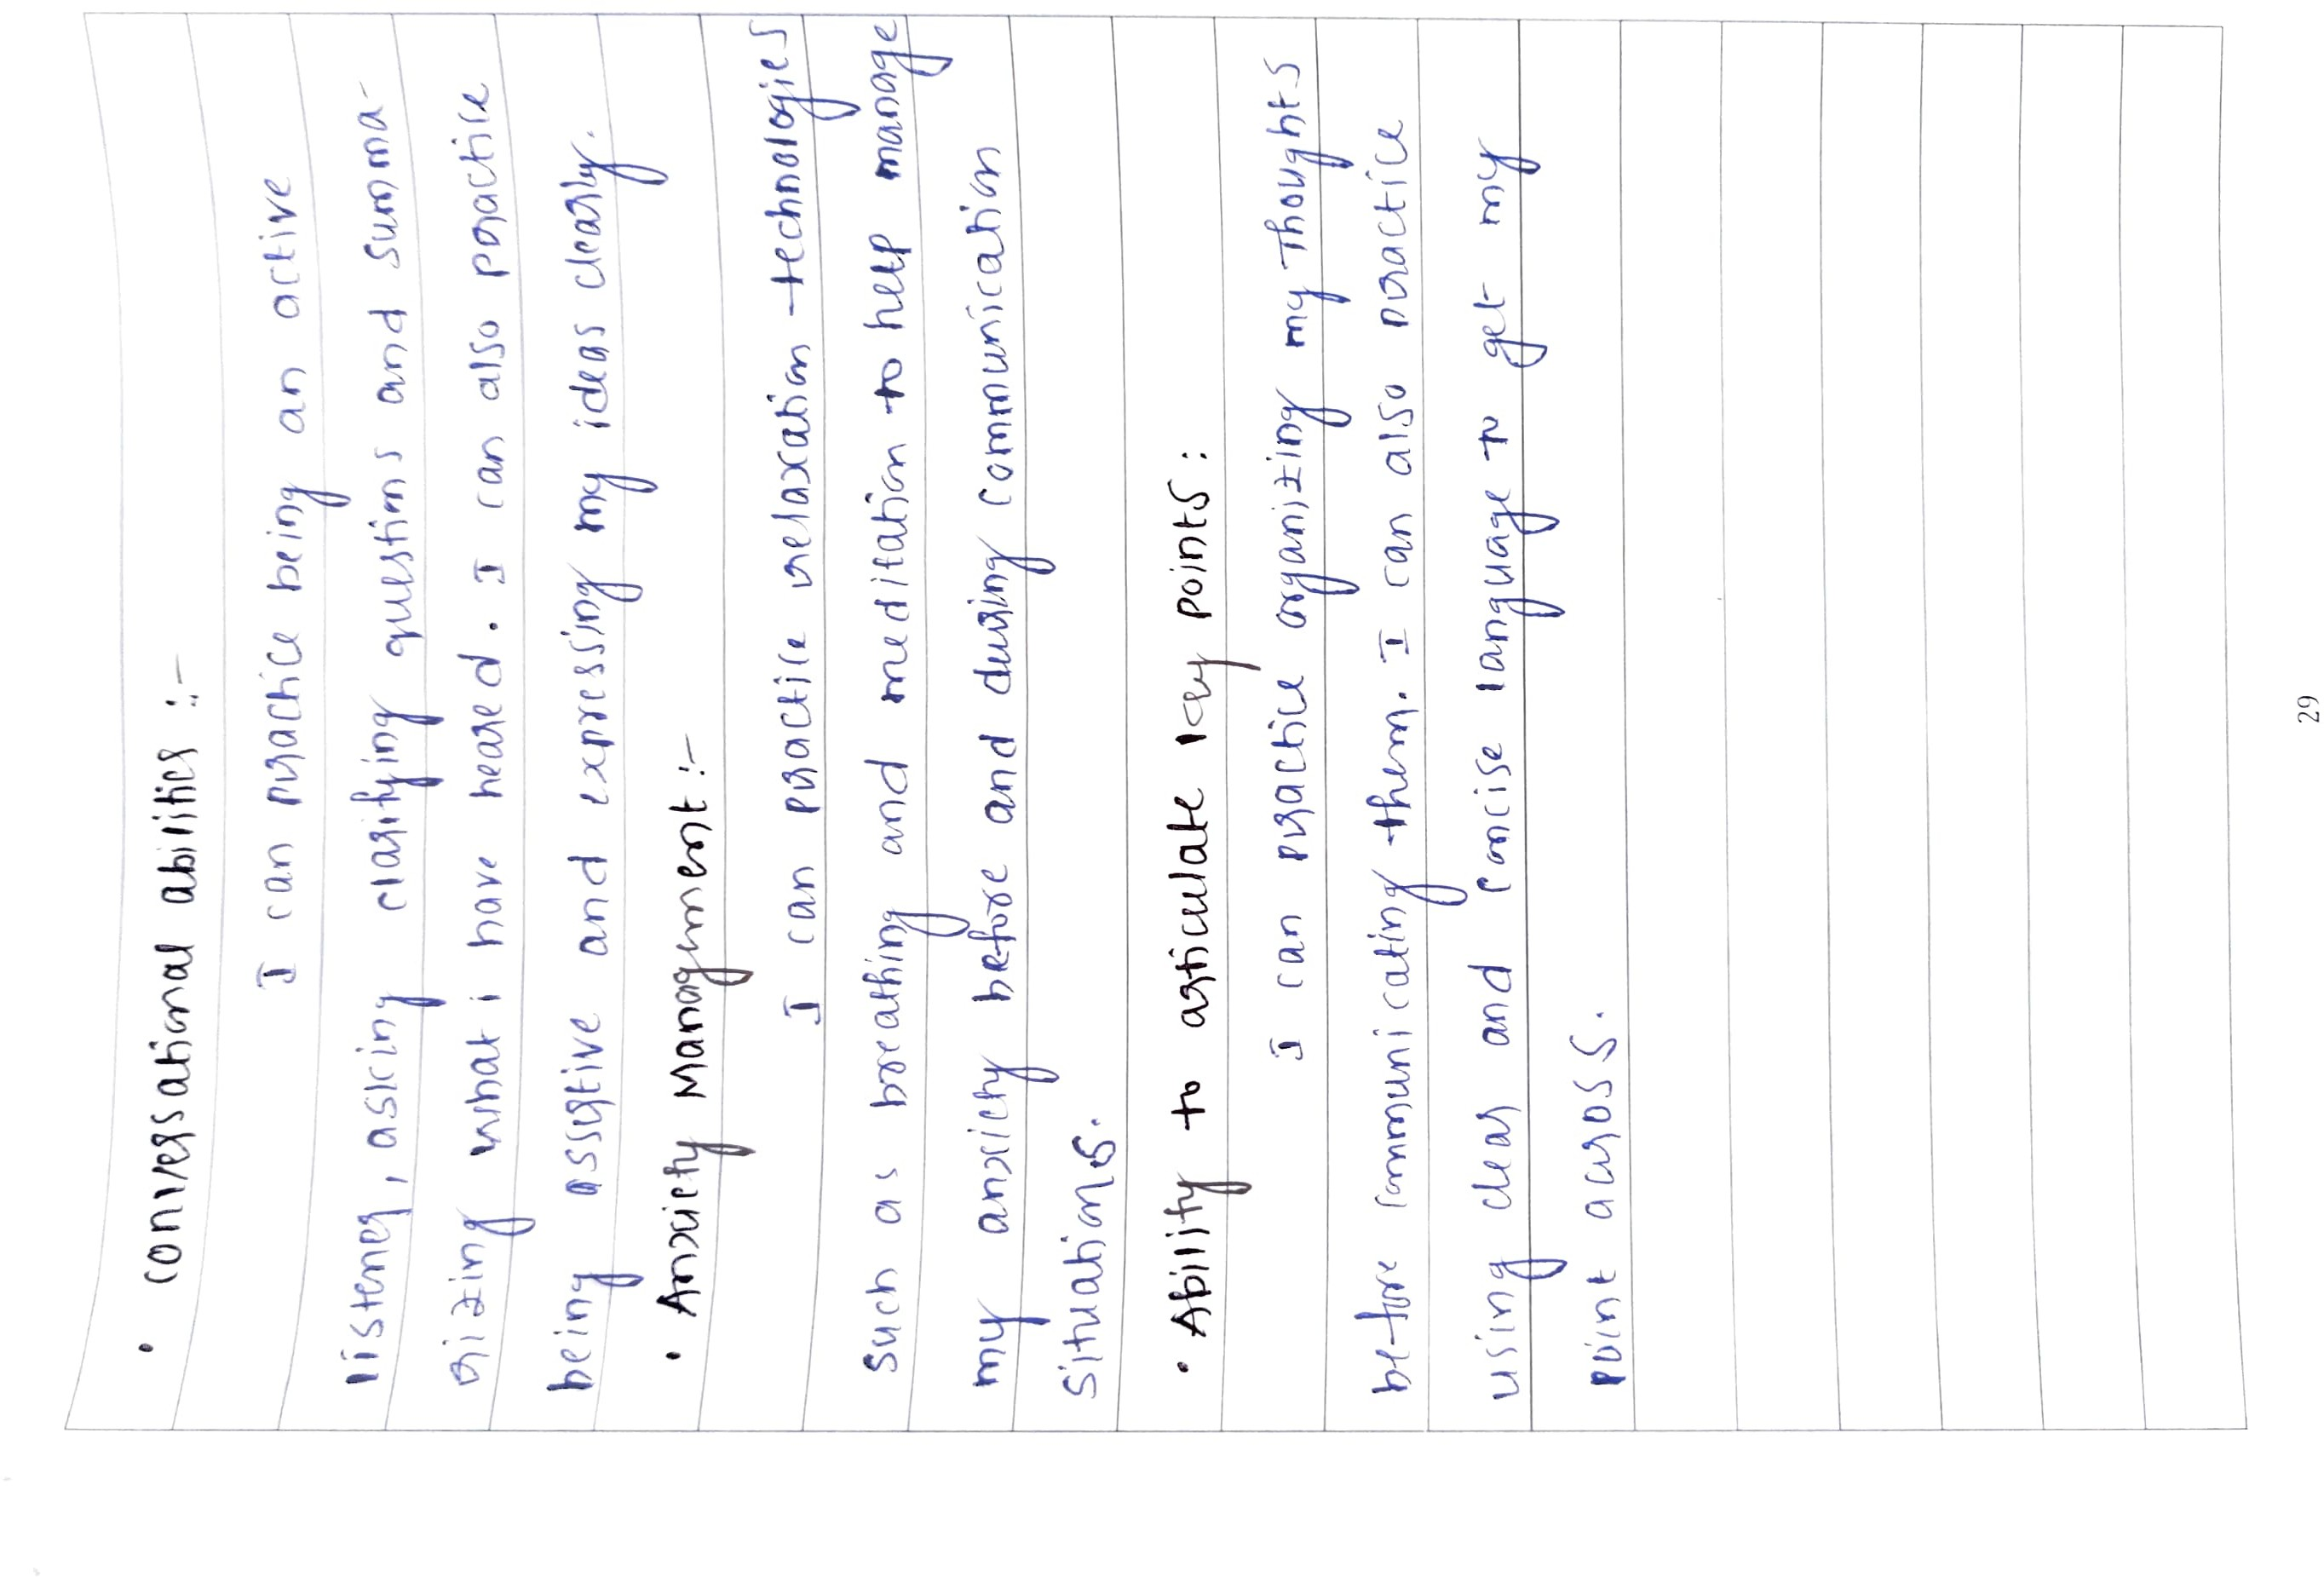 • Conversational abilities :-
I can practice being an active
listener, asking clarifying questions and summa-
rizing what i have heared. I can also practice
being assertive and expressing my ideas clearly.
• Anxiety Managment :-
I can practice relaxation technologies
such as breathing and meditation to help manage
my anxiety before and during communication
situations.
• Ability to articulate key points :
I can practice organizing my thoughts
before communicating them. I can also practice
using clear and concise language to get my
point across.
29